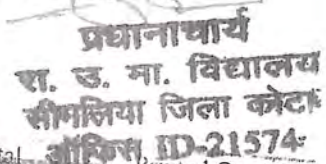 प्रधानाचार्य
रा. उ. मा. विद्यालय
सीमलिया जिला कोटा
ऑफिस ID-21574